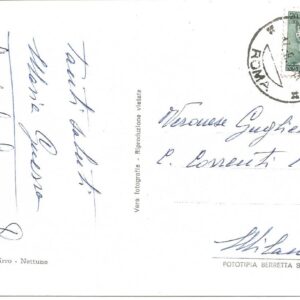 Tanti saluti
Maria Guerra
Vera fotografia - Riproduzione vietata
ROMA
Veronese Gugliel
C. Correnti
Milan
rro - Nettuno
FOTOTIPIA BERRETTA